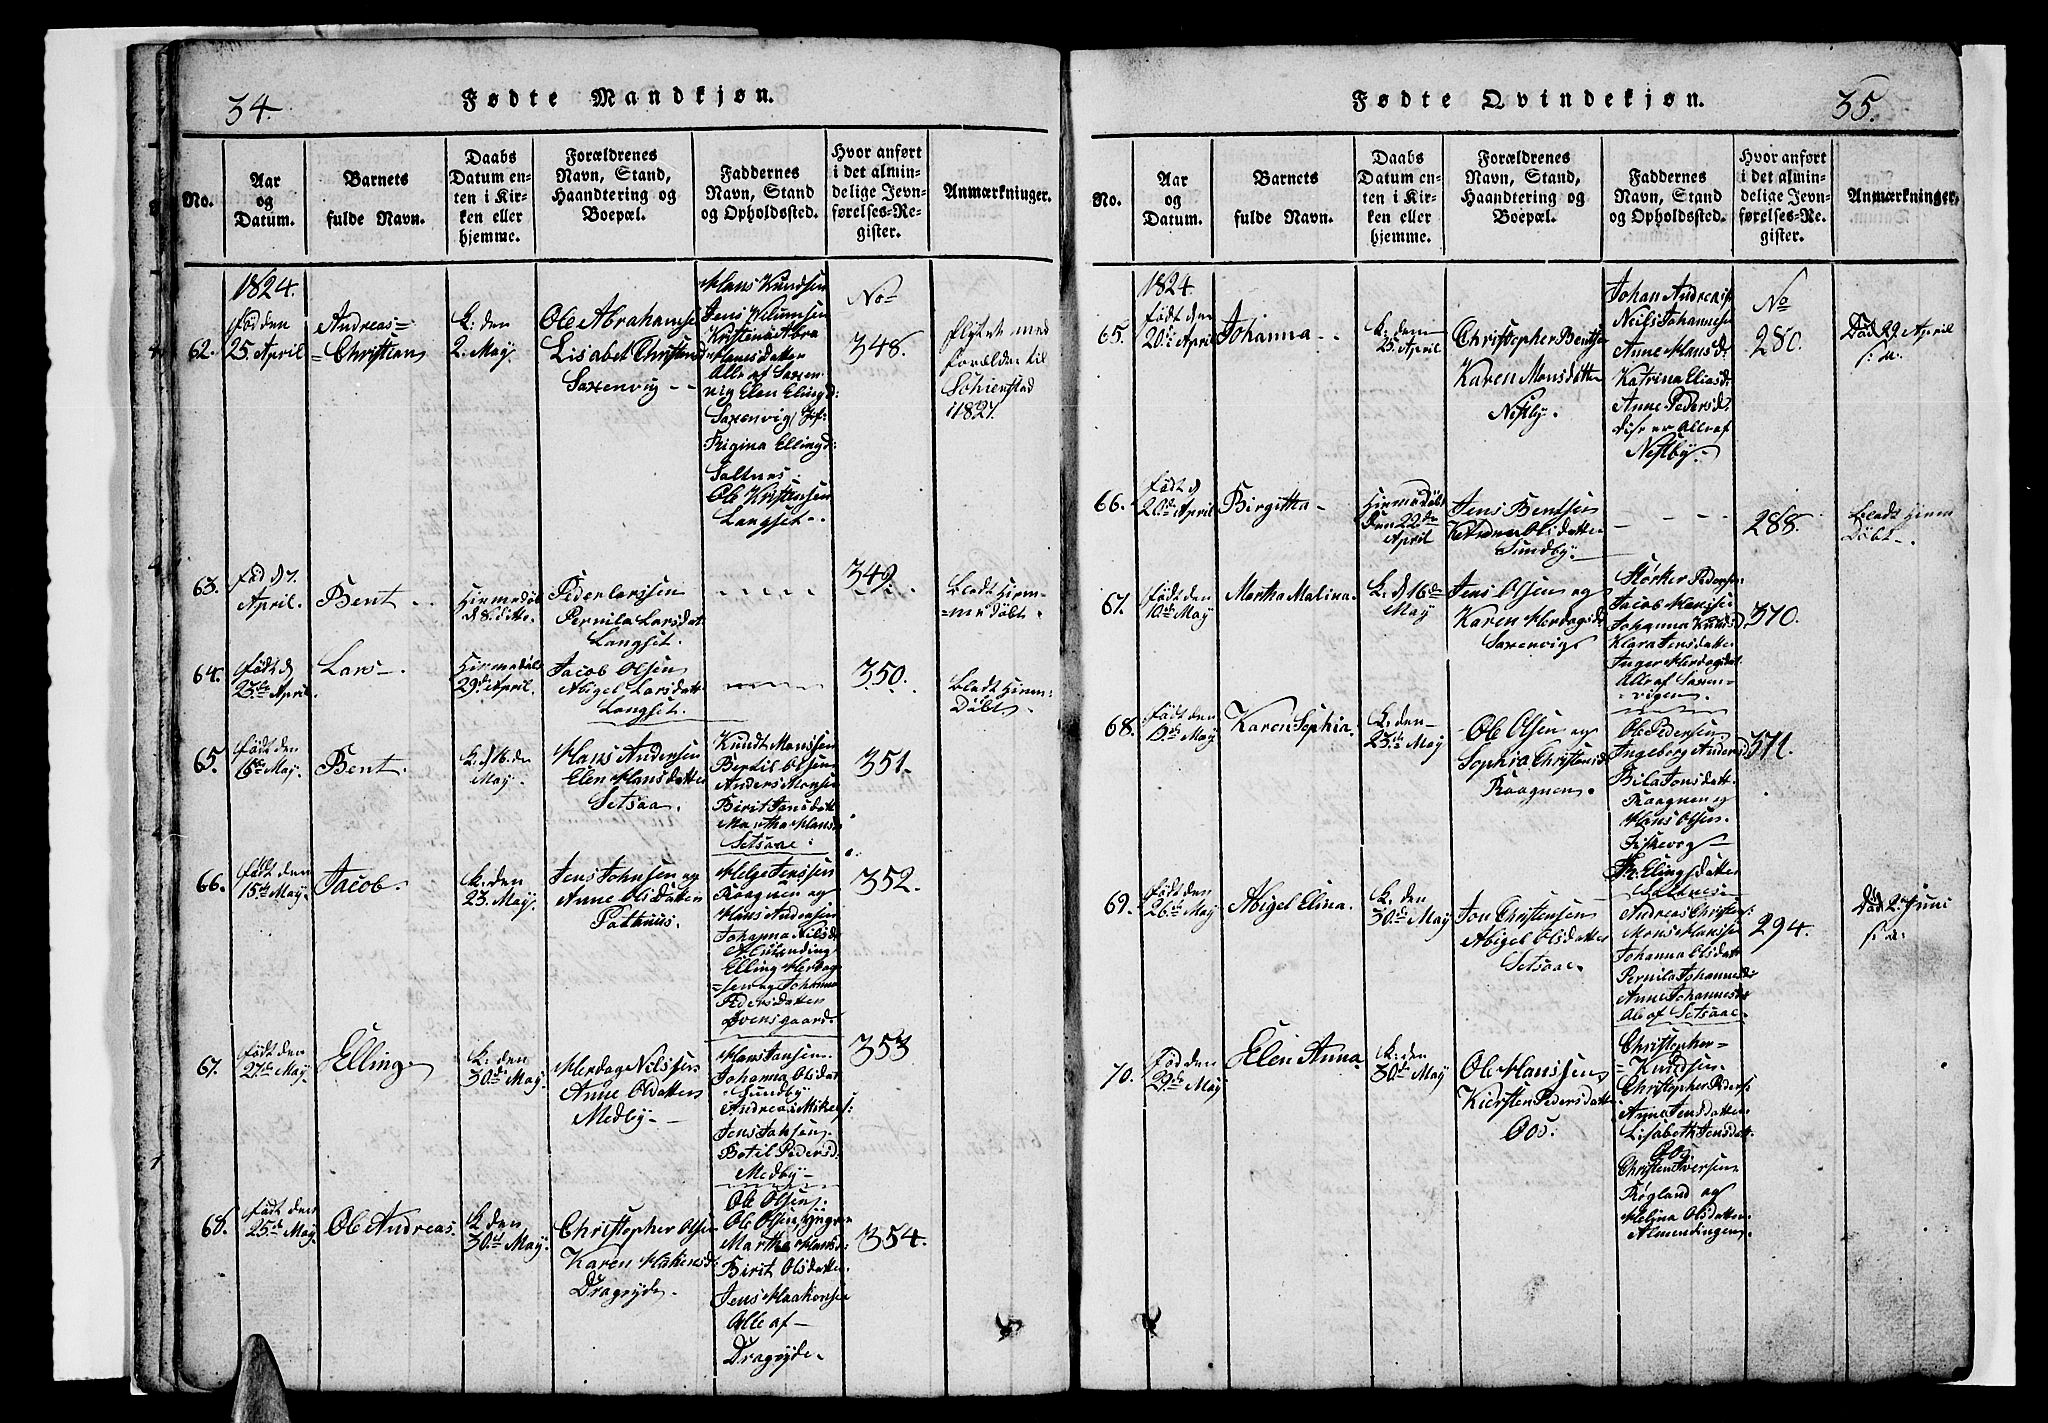 34.
Fødte Mandkjøn.
No.
Aar
og
Datum.
Barnets
fulde Navn.
Daabs
Datum en-
ten i Kir-
ken eller
hjemme.
Forældrenes
Navn, Stand,
Haandtering og
Boepæl.
Faddernes
Navn, Stand
og Opholdssted.
Hvor anført
i det almin-
delige Jevn-
førelses-Re-
gister.
Anmærkninger.
1824.
62.
Fød den
25. April
Andreas=
=Christian
K: den
2. May.
Ole Abrahamse
Lisabet Christend
Saxenvig
Hans Kundsen
Alle af Saxen
vig Elen Elingd:
Saxenvig
Rigina Ellingd:
Saltnes.
Ole Kristensen
Langset.
No
348.
flytet med
forældre til
i 1827.
63.
Fød d 7.
April.
Bent
Hiemedøb
d 8. ditto.
Peder Larssen
Pernila Larsdat
Langset.
349.
Bledt Hiem=
=me Døbt.
64.
Født d
23de April.
Lars
Hiemedøb
29de April.
Jacob Olsen
Abigel Larsdatt
Langset.
350.
Bledt Hiem=
Døbt.
65.
Født den
16de May.
Bent.
K. d 16. de
May.
Hans Andersen
Elen Hansdatter
Setsaa.
Kundt Monssen
Bertil Olsen
Anders Monsen
Birit Jensdatt
Martha Hansd
Setsaae.
351.
66.
Født den
15de May.
Jacob.
K. den
23. May.
Jens Johnsen og
Anne Olsdatter
Pothuus.
Helge Jenssen
Kaagnen og
Hans Andersen
Johanna Nilsd
Elling Herdag
=sen og Johanna
Pedersdatter
Evensgaard.
352.
67.
Født den
27de May.
Elling
K. den
30de May.
Herdag Nilssen
Anne Olsdatter
Medby
Hans Jansen.
Johanna Olsdat
Sundby
Andreas Mikels:
Jens Johsen
Botil Pedersd:
Medby
353
68.
Født den
25de May.
Ole Andreas.
K den
30de May.
Christopher Olsen
Karen Hakensd:
Dragøyde.
Ole Olsen.
Ole Olsen, Yngre
Martha Hansd:
Birit Olsdatter
Jens Haakonsen
Alle af
Dragøyde.
354.
Fødte Qvindekjøn.
35.
No.
Aar
og
Datum.
Barnets
fulde Navn.
Daabs
Datum en-
ten i Kir-
ken eller
hjemme.
Forældrenes
Navn, Stand,
Haandtering og
Boepæl.
Faddernes
Navn, Stand
og Opholdssted.
Hvor anført
i det almin-
delige Jevn-
førelses-Re-
gister.
Anmærkninger.
1824.
65.
Født den
20de April
Johanna
K. den
25 April
Christopher Bentse
Karen Monsdatter
Nestby.
Johan Andreas
Neils Johannesen
Anne Hansd:
Katrina Eliasd:
Anne Pedersd:
disse er Alle af
Nestby.
No
280.
Død 29 April
s: a.
66.
Født d
20de April
Birgitta
Hiemedøbt
den 22de
April
Jens Bentsen
Olsdatter
Sundby
288.
Bledt Hiem
Døbt.
67.
Født den
10de May
Martha Malina.
K. d 16de
May
Jens Olsen og
Karen Herdagsd
Saxenvig
Størker Pederse
Jacob Hansen
Johanna Kundsd
Klara Jensdatter
Inger Herdagdat
Alle af Saxen-
vigen.
370.
68.
Født den
13de May
Karen Sophia.
K. den
23de May
Ole Olsen og
Sophia Christensd
Kaagnen.
Ole Pedersen
Ingeborg Andersd
Bila Jonsdatt
Kaagnen og
Hans Olsen.
Fiskevog
Elingsdatter
Saltnes.
371.
69.
Født den
26de May
Abigel Elina.
K. den
30de May
Jon Christensen
Abigel Olsdatter
Setsaae.
Andreas Christens:
Mons Hanssen
Johanna Olsdatt
Pernila Johannesd:
Anne Johannesd
Ale af Setsaae.
294.
Død 2. Juni
s: a:
70.
Fød den
29de May
Elen Anna
K. den
30de May
Ole Hanssen
Kiersten Pedersdatter
Oos.
Christopher=
=Kundsen.
Christopher Peders:
Anna Jensdatter
Lisabeth Jensdatt
Oos
Christen Iversen
Røgland og
Helina Olsdatter
Almendingen.